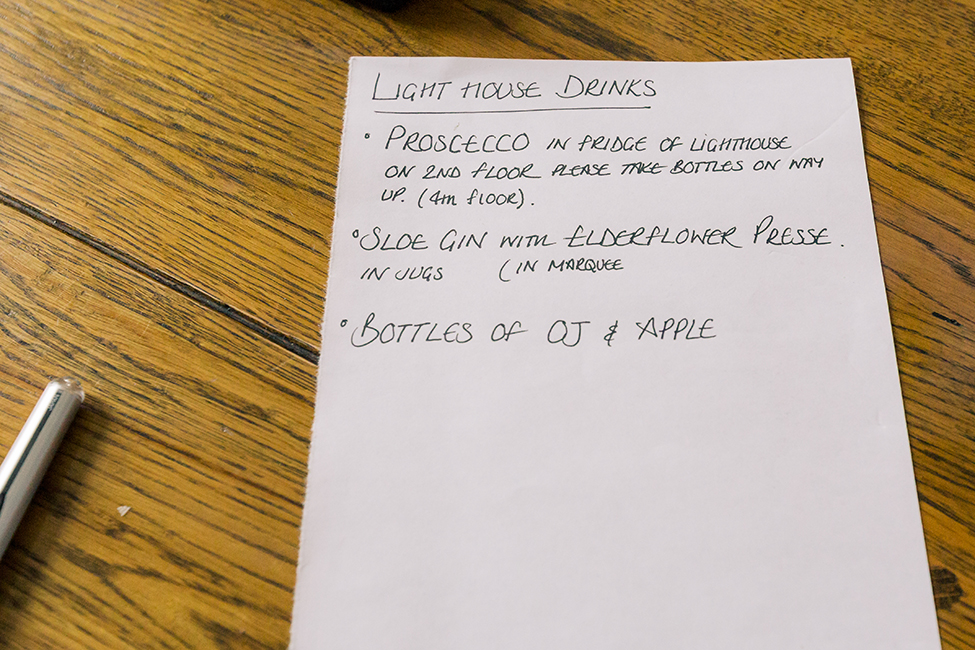 LIGHT HOUSE DRINKS
° PROSCECCO IN FRIDGE OF LIGHTHOUSE
ON 2ND FLOOR PLEASE TAKE BOTTLES ON WAY
UP. (4TH FLOOR).
° SLOE GIN WITH ELDERFLOWER PRESSE.
IN JUGS (IN MARQUEE
° BOTTLES OF OJ & APPLE